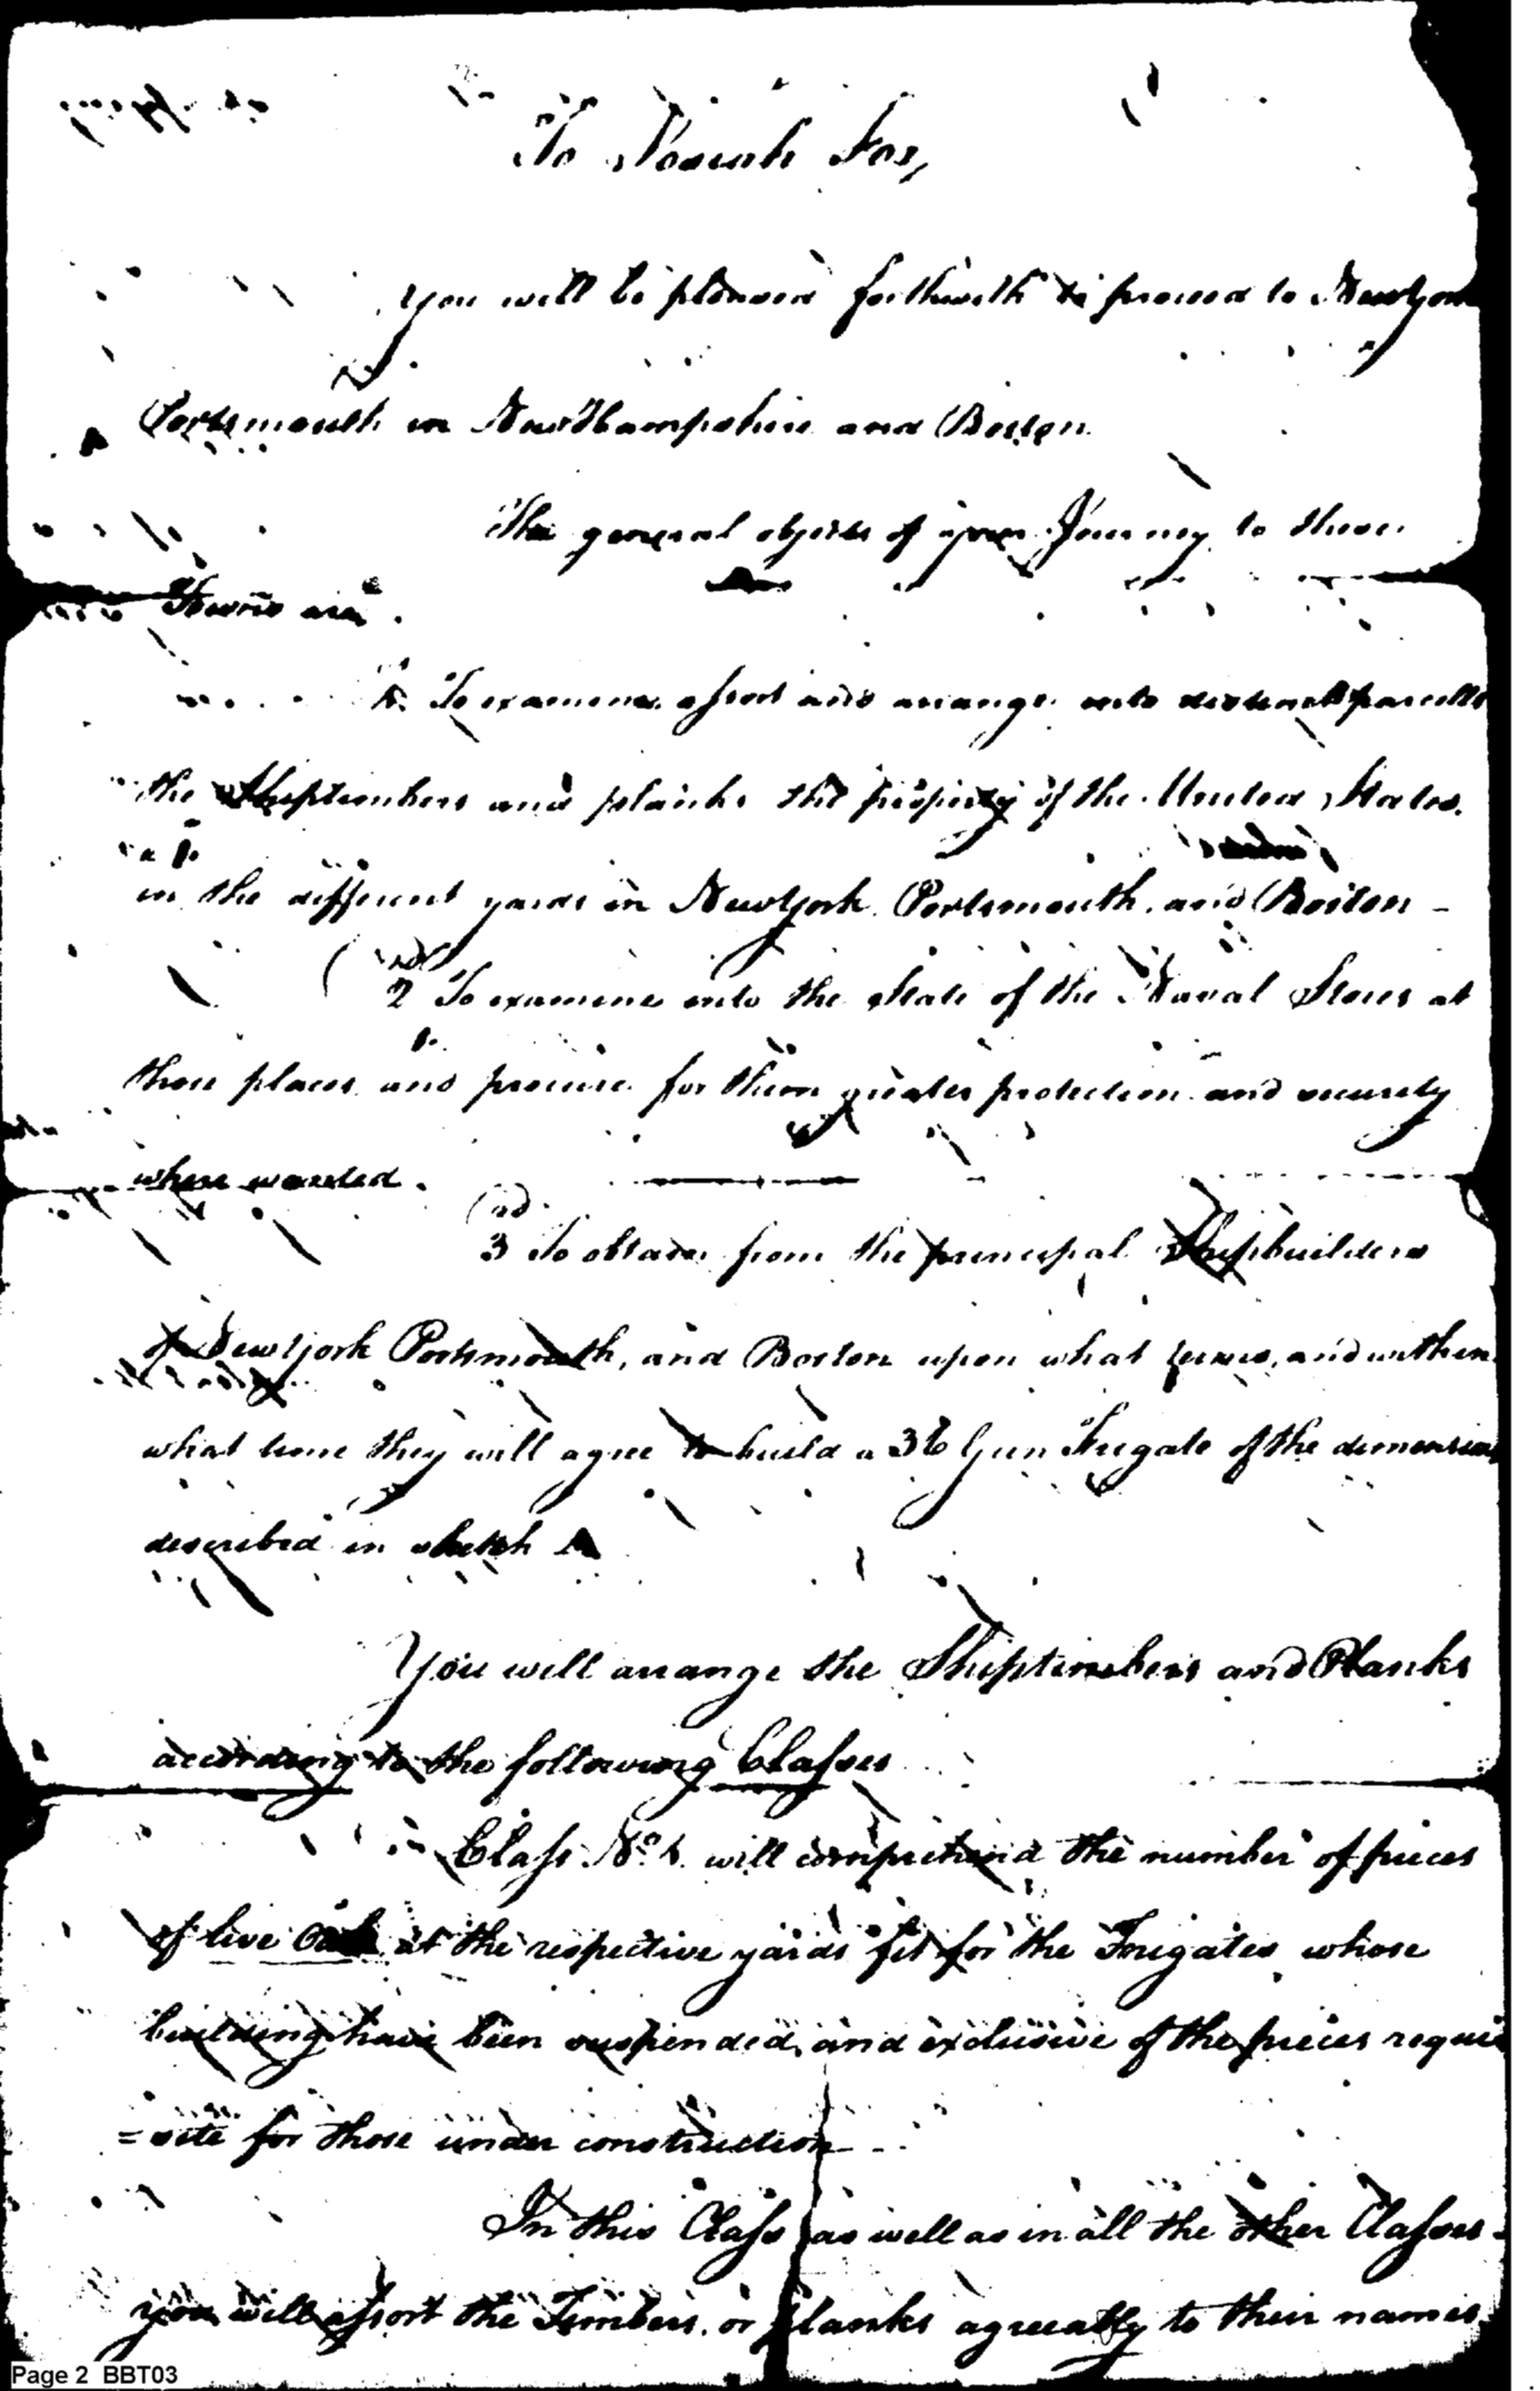 To Josiah Fox,
You will be pleased forthwith to proceed to Newyork
Portsmouth in NewHampshire and Boston.
The general objects of your Journey to these
Towns are.
1. To examine assort and arrange into distinct parcells
the Shiptimbers and planks the property of the United States.
in the different yards in Newyork. Portsmouth. and Boston -
2 To examine into the State of the Naval Stores at
those places and procure for them greater protection and security
where wanted.
3 To obtain from the principal Shipbuilders
of Newyork Portsmouth, and Boston upon what terms, and within
what time they will agree to build a 36 Gun Frigate of the dimensions
described in sketch A
You will arrange the Shiptimbers and Planks
according to the following Classes
Class No. 1. will comprehend the number of pieces
of live Oak at the respective yards fit for the Frigates whose
building have been suspended, and exclusive of the pieces requi
=site for those under construction -
In this Class as well as in all the other Classes -
you will assort the Timbers. or planks agreeably to their names.
Page 2 BBT03